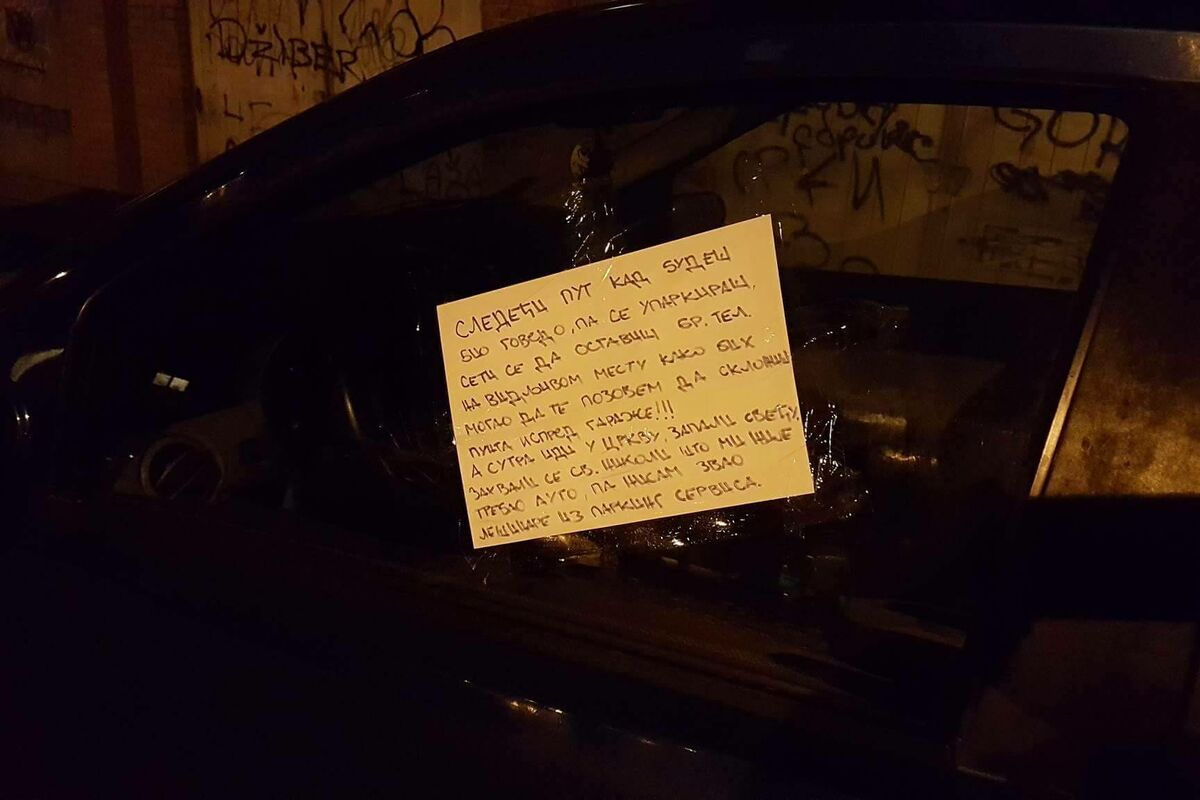 DŽIBER
СЛЕДЕЋИ ПУТ КАД БУДЕШ
БИО ГОВЕДО, ПА СЕ УПАРКИРАШ,
СЕТИ СЕ ДА ОСТАВИШ БР. ТЕЛ.
НА ВИДЉИВОМ МЕСТУ КАКО БИХ
МОГАО ДА ТЕ ПОЗОВЕМ ДА СКЛОНИШ
ИСПРЕД ГАРАЖЕ!!!
А СУТРА ИДИ У ЦРКВУ, ЗАПАЛИ СВЕЋУ,
ЗАХВАЛИ СЕ СВ. НИКОЛИ ШТО МИ НИЈЕ
ТРЕБАО АУТО, ПА НИСАМ ЗВАО
ЛЕШИНАРЕ ИЗ ПАРКИНГ СЕРВИСА.